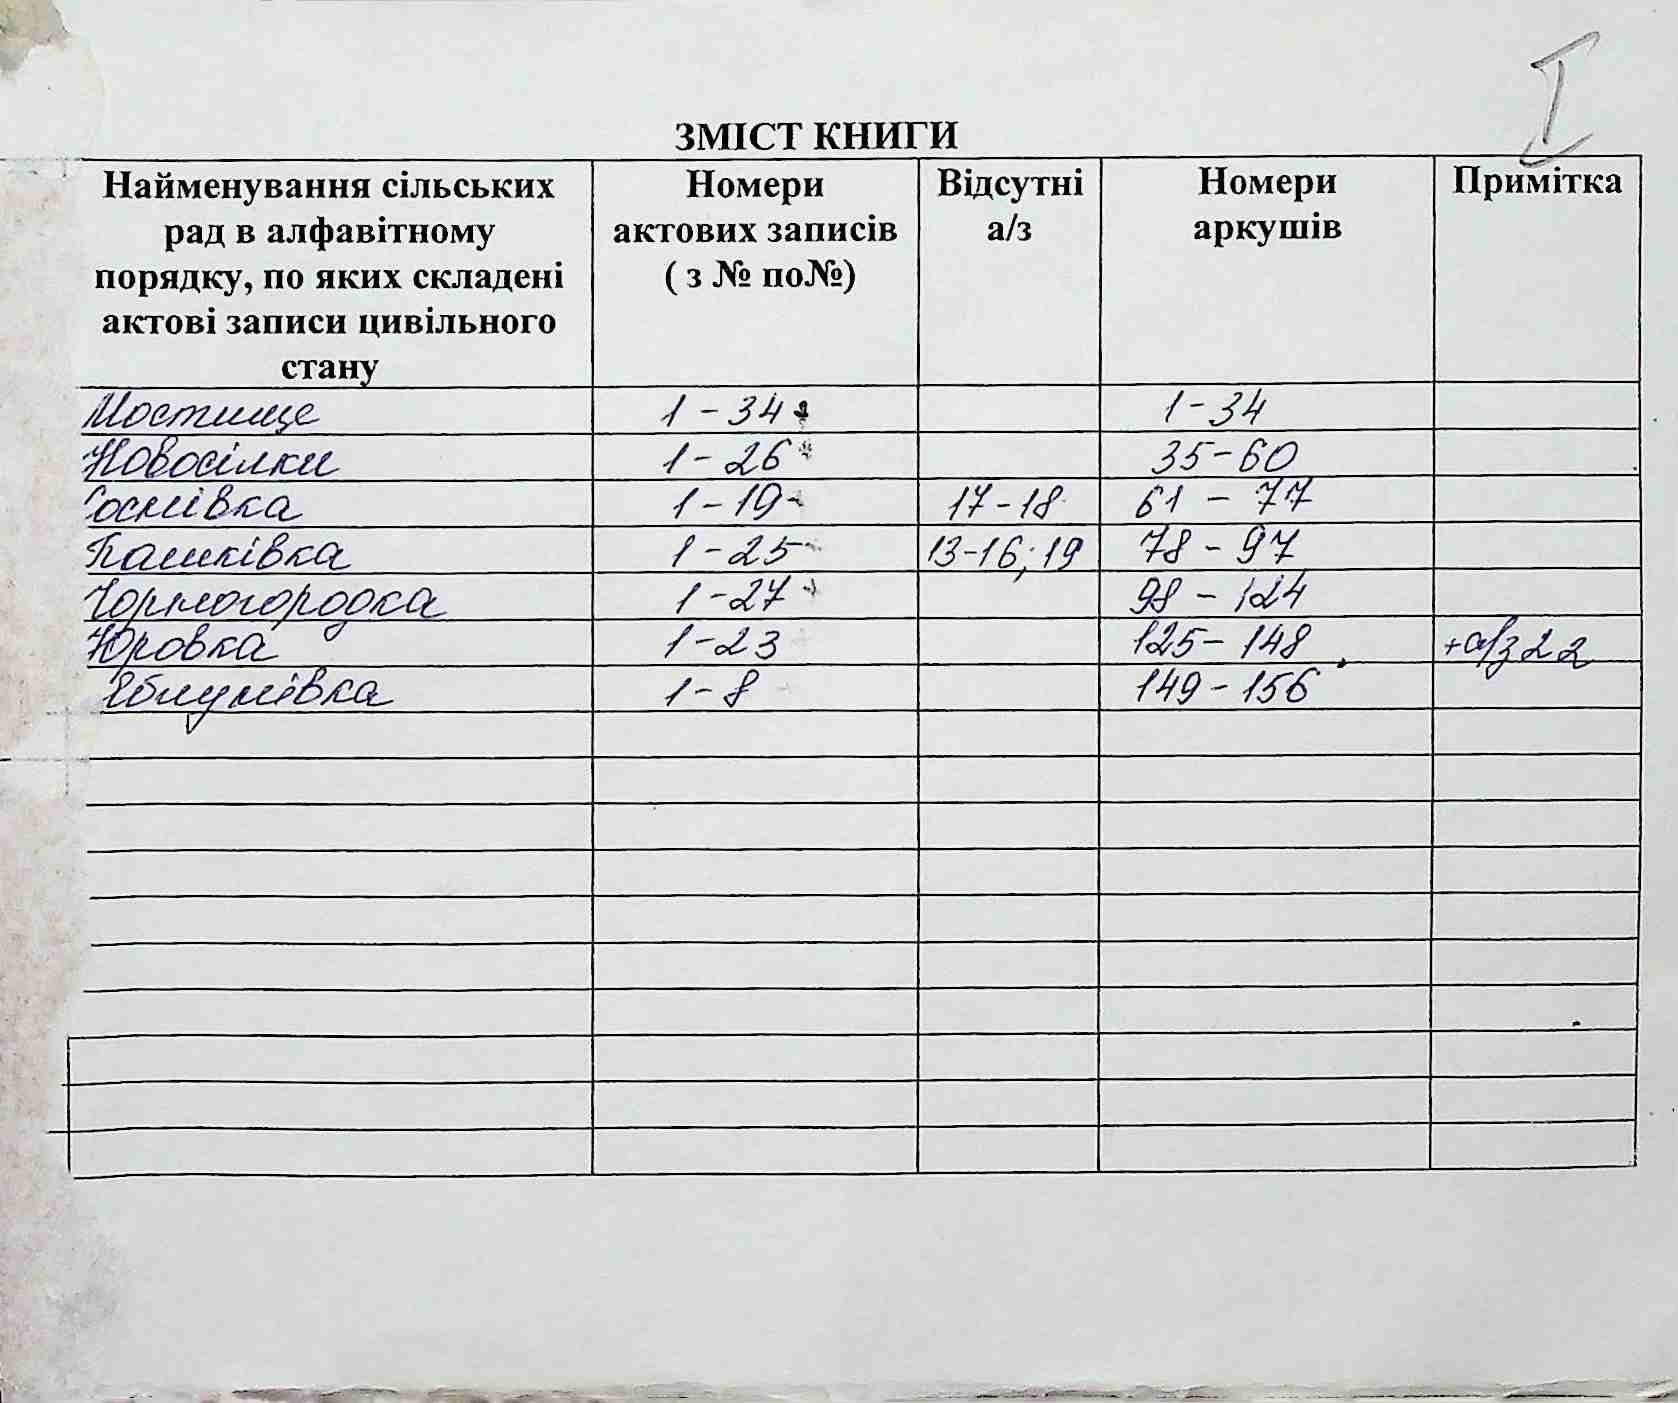 I
ЗМІСТ КНИГИ
Найменування сільських рад в алфавітному порядку, по яких складені актові записи цивільного стану | Номери актових записів ( з № по№) | Відсутні а/з | Номери аркушів | Примітка
Мостище 1 - 34 1 - 34
Новосілки 1 - 26 35 - 60
Соснівка 1 - 19 17 - 18 61 - 77
Пашківка 1 - 25 13-16; 19 78 - 97
Чорногородка 1 - 27 98 - 124
Юровка 1 - 23 125 - 148 +а/з 22
Яблунівка 1 - 8 149 - 156